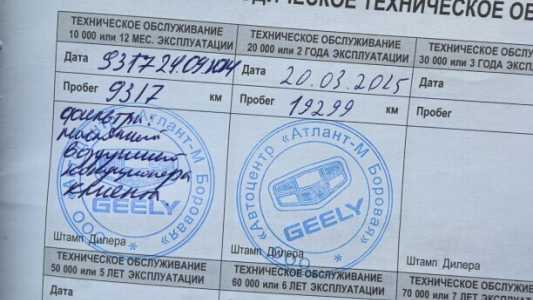 ИЧЕСКОЕ ТЕХНИЧЕСКОЕ ОБ
ТЕХНИЧЕСКОЕ ОБСЛУЖИВАНИЕ
10 000 или 12 МЕС. ЭКСПЛУАТАЦИИ
Дата 24.09
Пробег 9317 км
фильтры:
масляный
воздушный
кондиционера
клиента
ООО «Автоцентр «Атлант-М Боровая»
GEELY
Штамп Дилера
ТЕХНИЧЕСКОЕ ОБСЛУЖИВАНИЕ
20 000 или 2 ГОДА ЭКСПЛУАТАЦИИ
Дата 20.03.2015
Пробег 19299 км
ООО «Автоцентр «Атлант-М Боровая»
GEELY
Штамп Дилера
ТЕХНИЧЕСКОЕ ОБСЛ
30 000 или 3 ГОДА ЭКСП
Дата
Пробег
Штамп Дилера
ТЕХНИЧЕСКОЕ ОБСЛУЖИВАНИЕ
50 000 или 5 ЛЕТ ЭКСПЛУАТАЦИИ
Дата
ТЕХНИЧЕСКОЕ ОБСЛУЖИВАНИЕ
60 000 или 6 ЛЕТ ЭКСПЛУАТАЦИИ
ТЕХНИЧЕСКОЕ ОБ
70 000 или 7 ЛЕТ Э